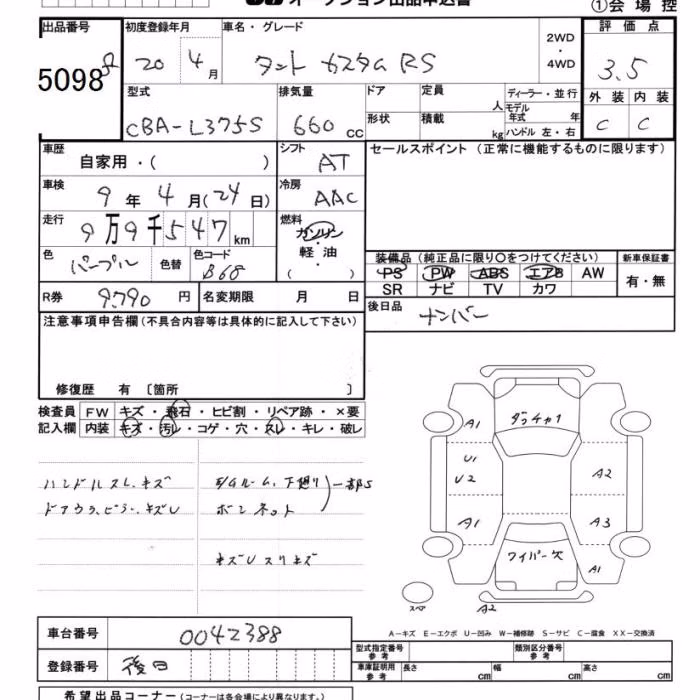 オークション出品申込書
①会場控
出品番号 初度登録年月 車名・グレード 2WD・4WD 評価点
5098 20 4月 タント カスタム RS 3.5
型式 排気量 ドア 定員 人 ディーラー・並行 外装 内装
CBA-L375S 660cc 形状 積載 kg モデル年式 年 ハンドル 左・右 C C
車歴 自家用・( ) シフト AT セールスポイント (正常に機能するものに限ります)
車検 9年 4月(24日) 冷房 AAC
走行 9万9千547km 燃料 ガソリン・軽油 ( )
色 パープル 色替 色コード B68
装備品 (純正品に限り○をつけてください) 新車保証書
PS PW ABS エアB AW 有・無
SR ナビ TV カワ
R券 9,790円 名変期限 月 日 後日品 ナンバー
注意事項申告欄(不具合内容等は具体的に記入して下さい)
修復歴 有 〔箇所 〕
検査員 FW キズ・飛石・ヒビ割・リペア跡・×要
記入欄 内装 キズ・汚レ・コゲ・穴・スレ・キレ・破レ
ハンドルスレ.キズ
ドアウラ、ピラー、キズU
E/Gルーム、下廻り 一部S
ボンネット
キズUスリキズ
A1 ダッチャ1
U1
U2 A2
A1 A3
ワイパー欠 A1
スペア A2
A-キズ E-エクボ U-凹み W-補修跡 S-サビ C-腐食 XX-交換済
車台番号 0042388
登録番号 後日
型式指定番号 参考 類別区分番号 参考
車庫証明用 参考 長さ cm 幅 cm 高さ cm
希望出品コーナー(コーナーは各会場により異なります。)